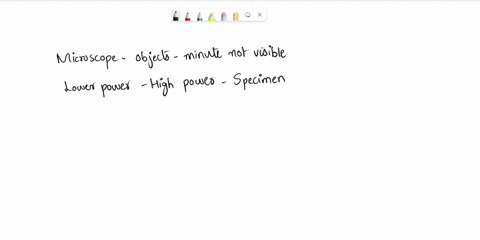 Microscope - objects - minute not visible
Lower power - High power - Specimen